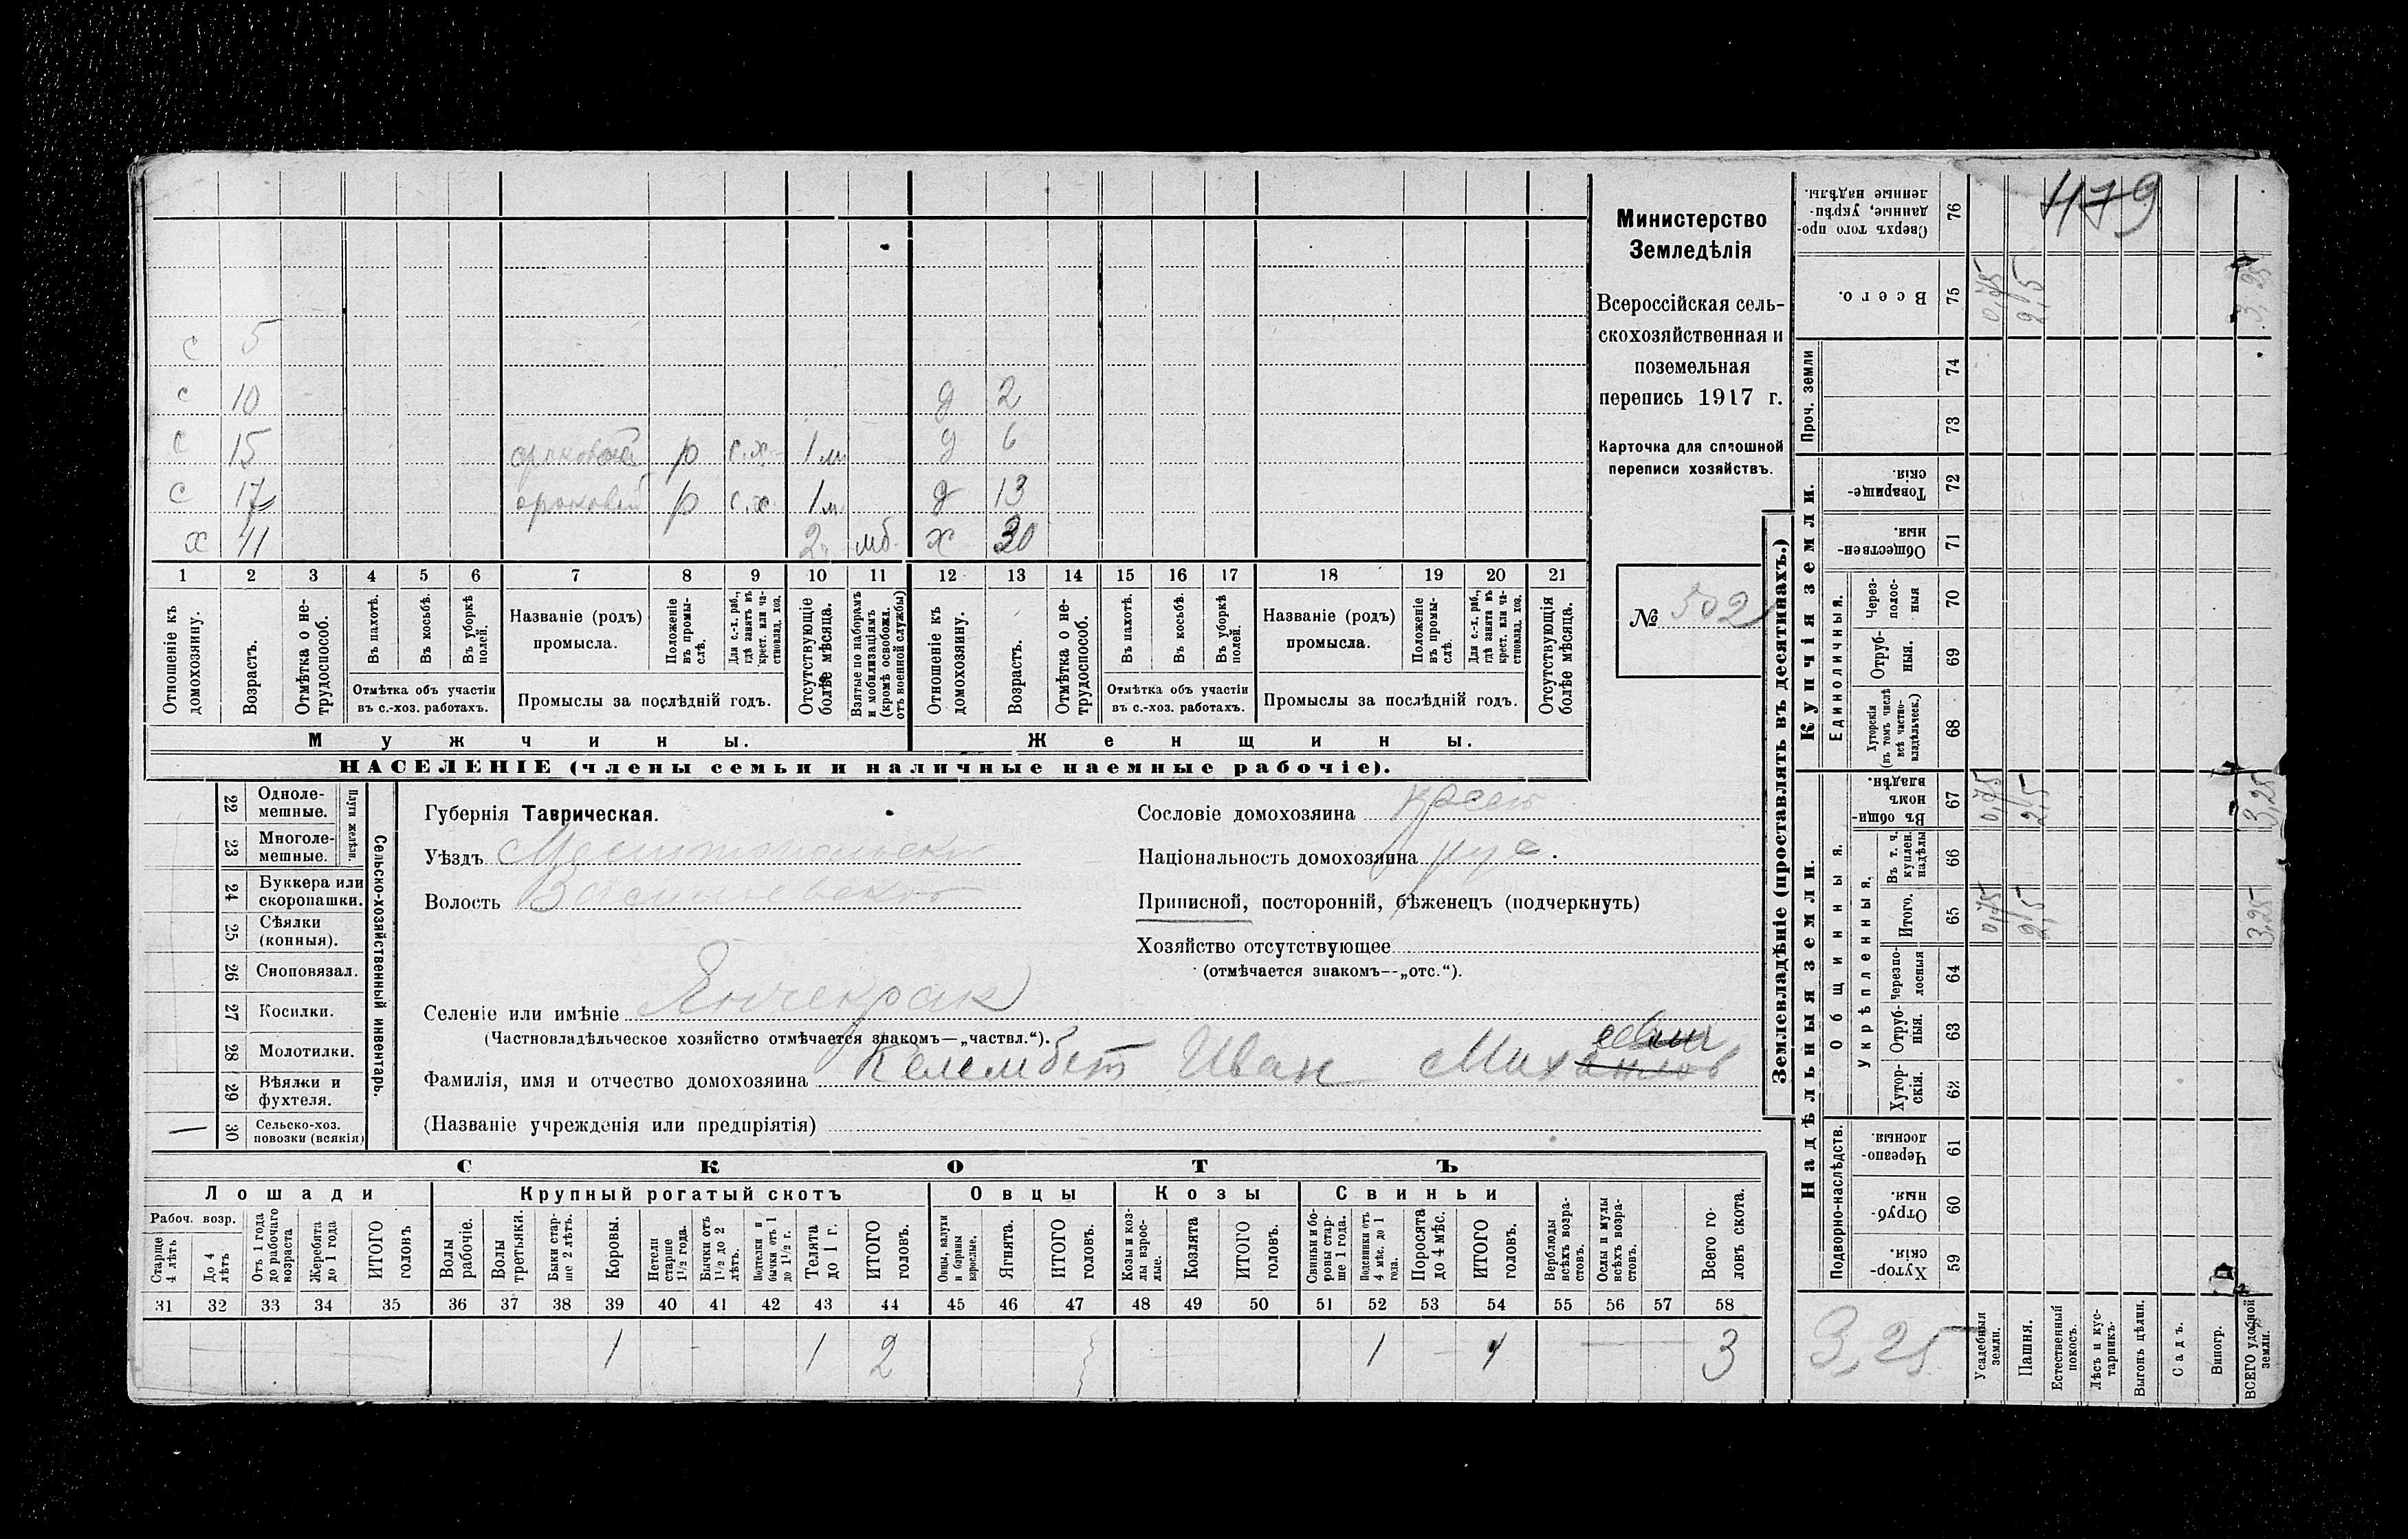 479
Министерство
Земледѣлія
Всероссійская сель-
скохозяйственная и
поземельная
перепись 1917 г.
Карточка для сплошной
переписи хозяйствъ.
№ 502
с 5
с 10 д 2
с 15 р с.х. 1 м д 6
с 17 сроковой р с.х. 1 м. д 13
х 41 2 мб. х 30
1 2 3 4 5 6 7 8 9 10 11 12 13 14 15 16 17 18 19 20 21
Отношеніе къ домохозяину.
Возрастъ.
Отмѣтка о не-трудоспособ.
Въ пахотѣ.
Въ косьбѣ.
Въ уборкѣ полей.
Отмѣтка объ участіи
въ с.-хоз. работахъ.
Названіе (родъ)
промысла.
Положеніе въ промы-слѣ.
Для с.-х. раб., гдѣ занятъ въ крест. или ча-стновлад. хоз.
Промыслы за послѣдній годъ.
Отсутствующіе болѣе мѣсяца.
Взятые по наборамъ и мобилизаціямъ (кромѣ освобожд. отъ военной службы)
Отношеніе къ домохозяину.
Возрастъ.
Отмѣтка о не-трудоспособ.
Въ пахотѣ.
Въ косьбѣ.
Въ уборкѣ полей.
Отмѣтка объ участіи
въ с.-хоз. работахъ.
Названіе (родъ)
промысла.
Положеніе въ промы-слѣ.
Для с.-х. раб., гдѣ занята въ крест. или ча-стновлад. хоз.
Промыслы за послѣдній годъ.
Отсутствующія болѣе мѣсяца.
Мужчины. Женщины.
НАСЕЛЕНІЕ (члены семьи и наличные наемные рабочіе).
Сельско-хозяйственный инвентарь.
Плуги желѣзн.
22 Однолемешные.
23 Многолемешные.
24 Буккера или скоропашки.
25 Сѣялки (конныя).
26 Сноповязал.
27 Косилки.
28 Молотилки.
29 Вѣялки и фухтеля.
30 Сельско-хоз. повозки (всякія) 1
Губернія Таврическая.
Уѣздъ Мелитопольскій
Волость Васильевская
Сословіе домохозяина
Національность домохозяина рус.
Приписной, посторонній, бѣженецъ (подчеркнуть)
Хозяйство отсутствующее
(отмѣчается знакомъ—„отс.“).
Селеніе или имѣніе Янчекрак
(Частновладѣльческое хозяйство отмѣчается знакомъ—„частвл.“).
Фамилія, имя и отчество домохозяина Келембет Иван
(Названіе учрежденія или предпріятія)
СКОТЪ
Лошади Крупный рогатый скотъ Овцы Козы Свиньи
Рабоч. возр.
Старше 4 лѣтъ
До 4 лѣтъ
Отъ 1 года до рабочаго возраста
Жеребята до 1 года
ИТОГО головъ
Волы рабочіе.
Волы третьяки.
Быки стар-ше 2 лѣтъ.
Коровы.
Нетели старше 1½ года.
Бычки отъ 1½ до 2 лѣтъ.
Подтелки и бычки отъ 1 до 1½ г.
Телята до 1 г.
ИТОГО головъ.
Овцы, валухи и бараны взрослые.
Ягнята.
ИТОГО головъ.
Козы и коз-лы взрос-лые.
Козлята
ИТОГО головъ.
Свиньи и бо-ровы стар-ше 1 года.
Подсвинки отъ 4 мѣс. до 1 года.
Поросята до 4 мѣс.
ИТОГО головъ.
Верблюды всѣхъ возра-стовъ.
Ослы и мулы всѣхъ возра-стовъ.
Всего го-ловъ скота.
31 32 33 34 35 36 37 38 39 40 41 42 43 44 45 46 47 48 49 50 51 52 53 54 55 56 57 58
1 1 2 1 1 3
Землевладѣніе (проставлять въ десятинахъ.)
Надѣльныя земли. Купчія земли. Проч. земли
Подворно-наслѣдств.
Общинныя.
Укрѣпленныя.
Единоличныя.
59 Хутор-скія.
60 Отруб-ныя.
61 Черезпо-лосныя.
62 Хутор-скія.
63 Отруб-ныя.
64 Черезпо-лосныя
65 Итого. 0,75 2,5 3,25
66 Въ т. ч. куплен. надѣлы
67 Въ общин-номъ владѣн. 0,75 2,5 3,25
68 Хуторскія (въ томъ числѣ всѣ частно-владѣльческ.)
69 Отруб-ныя.
70 Через-полос-ныя
71 Обществен-ныя.
72 Товарище-скія.
73
74
75 Всего. 0,75 2,5 3,25
76 Сверхъ того про-данные, укрѣп-ленные надѣлы.
3,25
Усадебныя земли.
Пашня.
Естественный покосъ.
Лѣсъ и кус-тарникъ.
Выгонъ цѣлин.
Садъ.
Виногр.
ВСЕГО удобной земли.